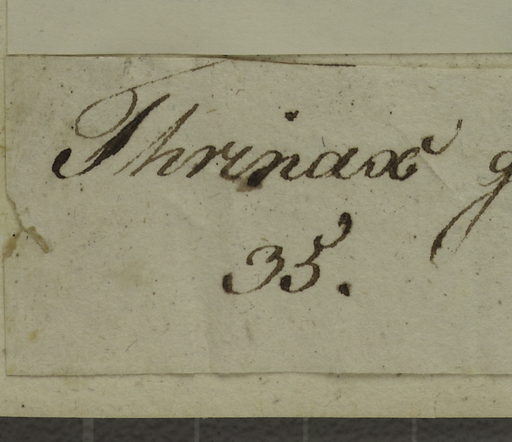 Thrinax g
35.